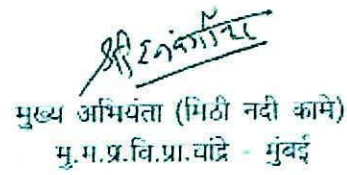 मुख्य अभियंता (मिठी नदी कामे)
मु.म.प्र.वि.प्रा.वांद्रे - मुंबई